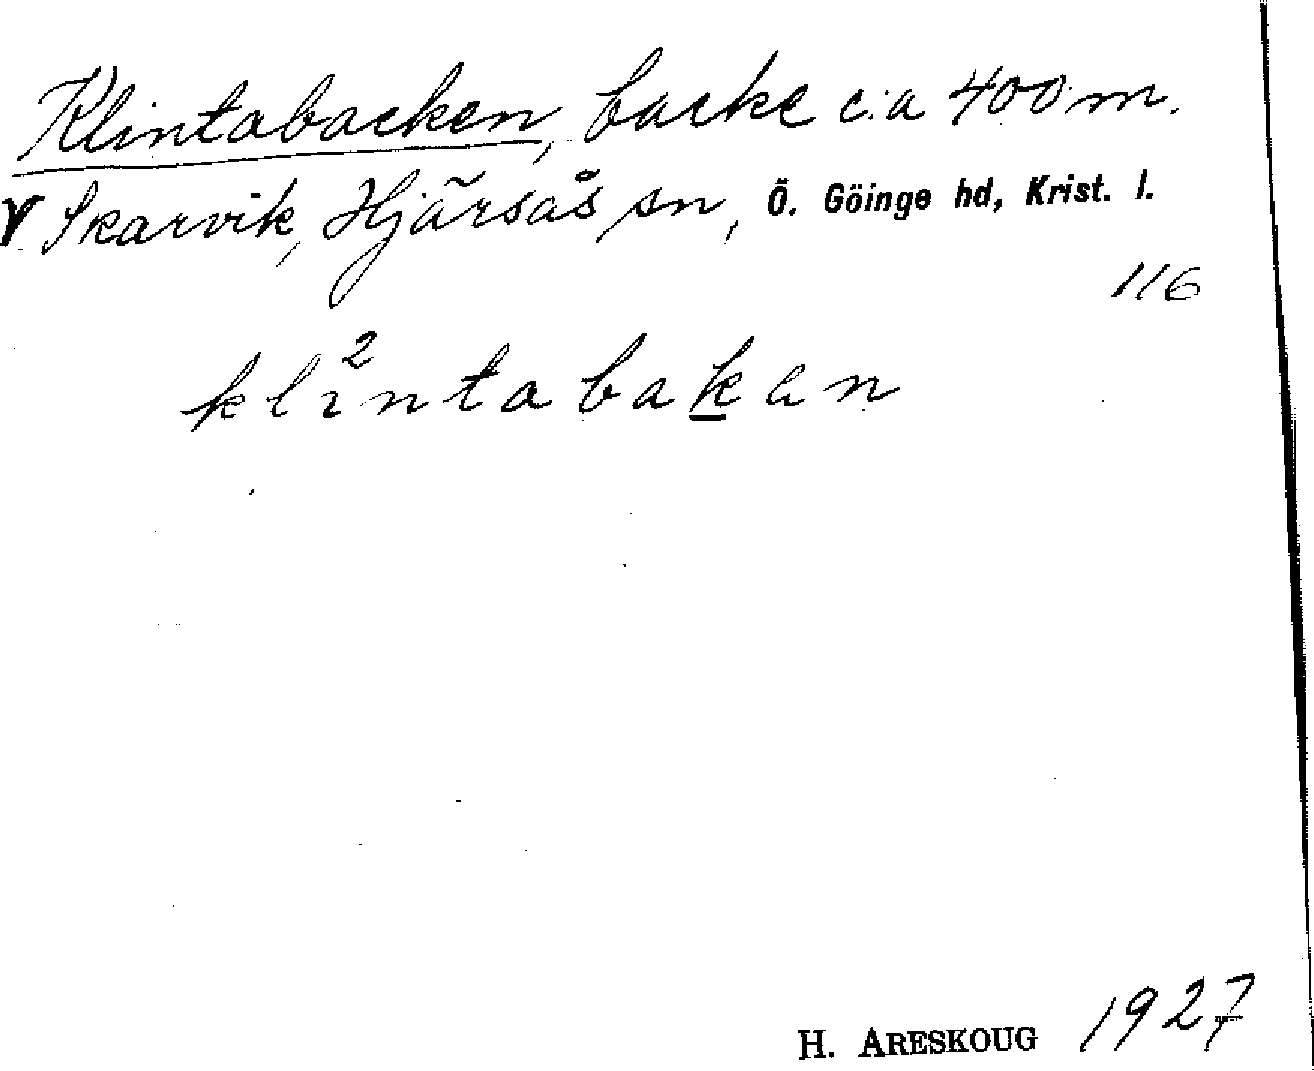 Klintabacken, backe c:a 400 m.
V Skarvik, Hjärsås sn, Ö. Göinge hd, Krist. l.
116
kli²ntabakan
H. ARESKOUG 1927